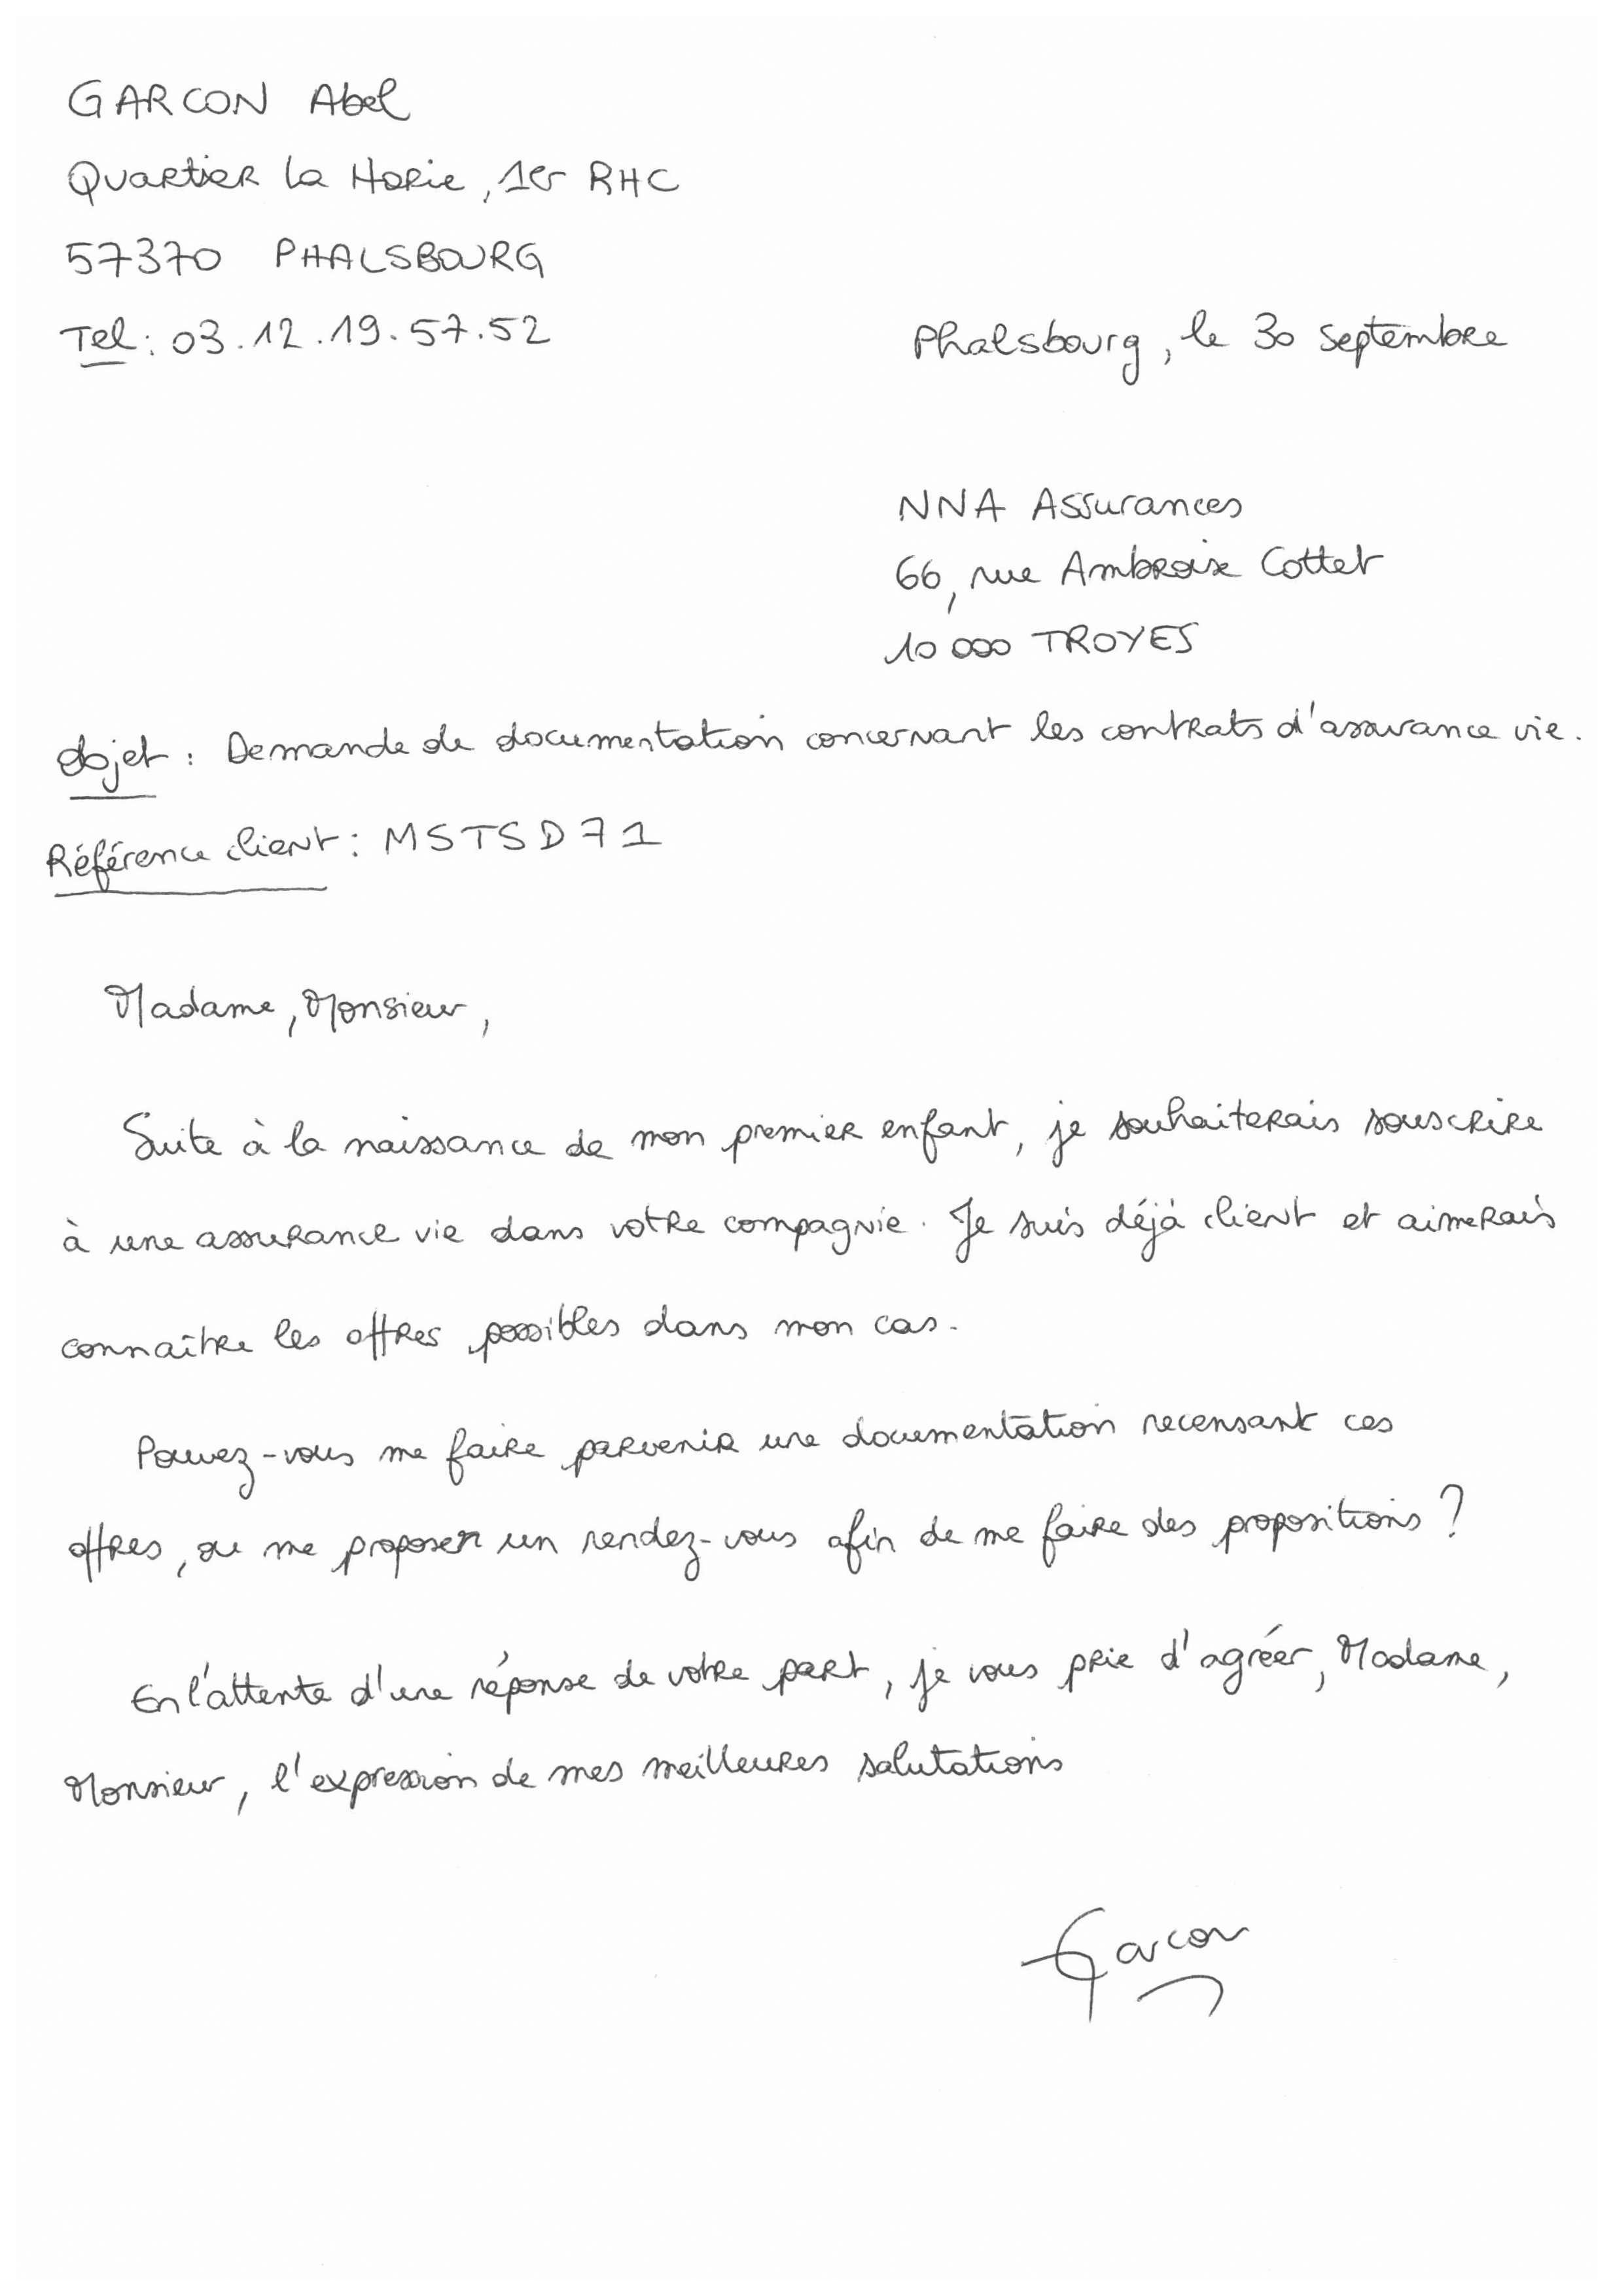 GARCON Abel
Quartier la Horie, 1er RHC
57370 PHALSBOURG
Tel : 03.12.19.57.52
Phalsbourg, le 30 septembre
NNA Assurances
66, rue Ambroise Cottet
10 000 TROYES
Objet : Demande de documentation concernant les contrats d'assurance vie.
Référence client : MSTSD71
Madame, Monsieur,
Suite à la naissance de mon premier enfant, je souhaiterais souscrire
à une assurance vie dans votre compagnie. Je suis déjà client et aimerais
connaître les offres possibles dans mon cas.
Pouvez-vous me faire parvenir une documentation recensant ces
offres, ou me proposer un rendez-vous afin de me faire des propositions ?
En l'attente d'une réponse de votre part, je vous prie d'agréer, Madame,
Monsieur, l'expression de mes meilleures salutations
Garcon